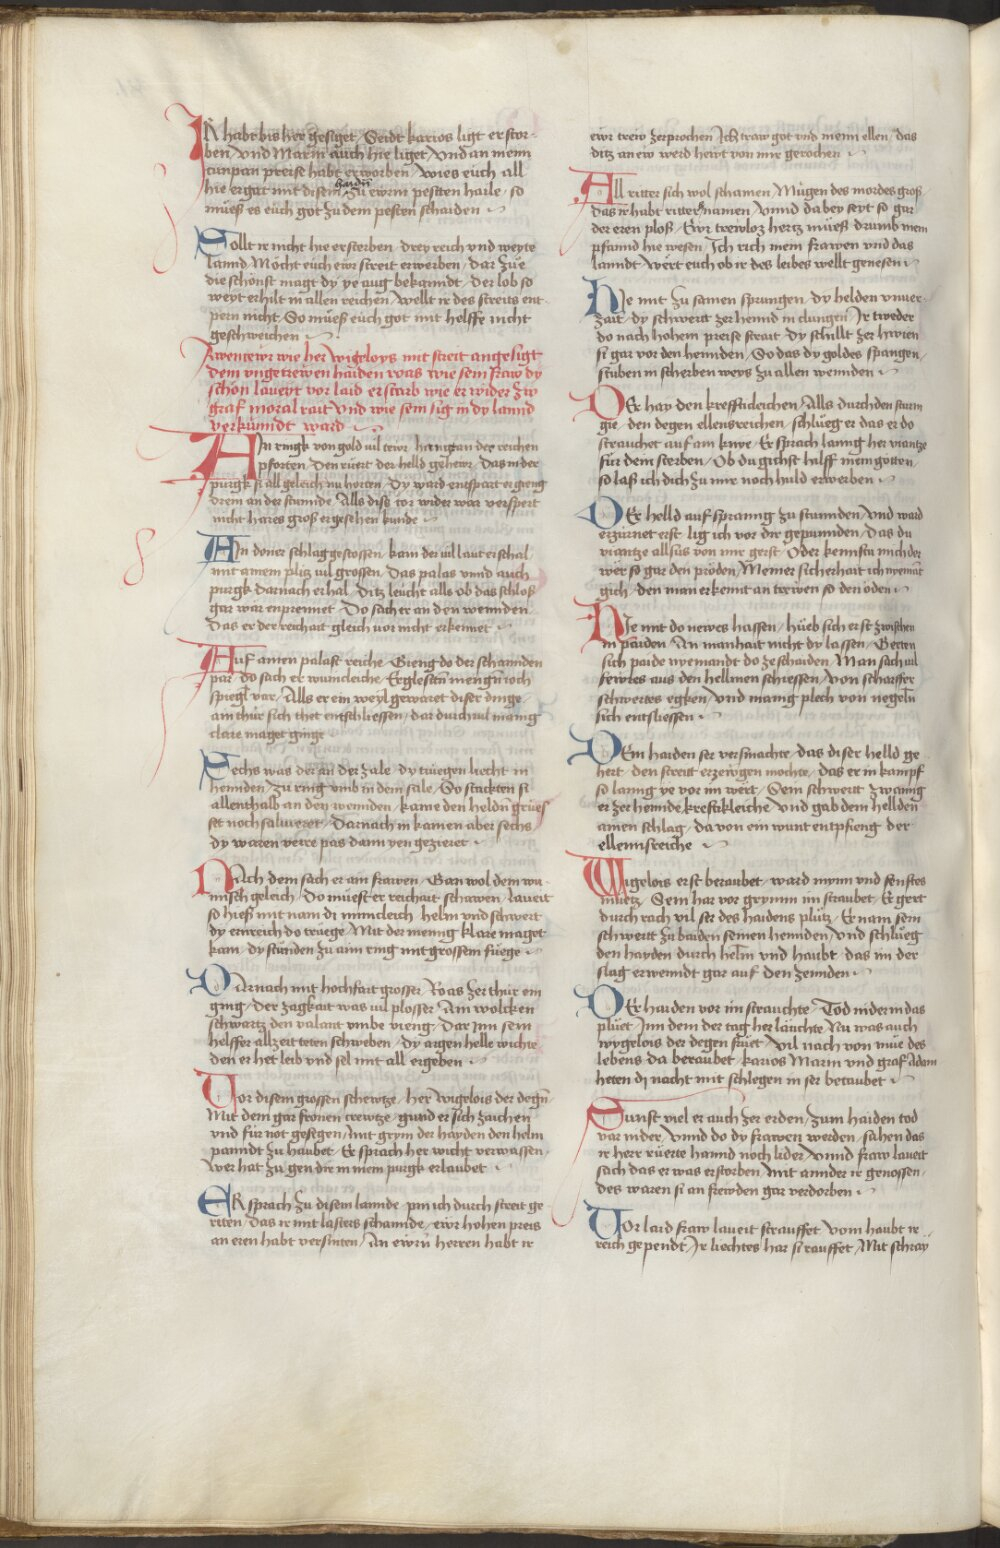 IR habt bis her gesiget / Seidt karios ligt erstor-
ben / vnd Marin auch hie liget / Vnd an meim
cumpan preise habt erworben / wies euch all
hie ergat mit disem haidn zu ewrm pesten haile / so
müeß es euch got zu dem pesten schaiden
Sollt ir nicht hie ersterben / drey reich vnd weyte
lannd / Mocht euch ewr streit erwerben / dar zue
die schonst magt dy ye aug bekanndt / der lob so
weyt erhilt in allen reichen / wellt ir des streits ent-
pern nicht / So müeß euch got mit helffe nicht
geschweichen
Awentewr wie her wigeloys mit streit angesigt
dem vngetrewen haiden roas wie sein fraw dy
schon laueyt vor laid erstarb wie er wider zw
graf moral rait vnd wie sein sig in dy lannd
verkundt ward
AIn ringk von gold vil tewr / hanig an der reichen
pforten / Den ruert der helld gehewr / Das in der
purgk si all geleich nu horten / Dy ward entspart er gieng
drein an der stunnde / Alls diß tor wider war verspert
nicht hares groß er gesehen kunde
AIn doner schlag gestossen / kam der vil laut erschal
mit ainem plitz vil grossen / Das palas vnnd auch
purgk darnach erhal / Ditz leucht alls ob das schloß
gar wär enprennet / Do sach er an den wennden
Das er der reichait gleich vor nicht erkennet
Auf ainen palast reiche / Gieng do der schannden
par / do sach er wunicleiche / Erglestn mengn roch
spiegl var / Alls er ein weyl gewartet diser dinge
ain thür sich thet entschliessen / dar durch vil manig
clare maget ginge
Sechs was der an der zale / dy truegen liecht in
hennden / zu ring vmb in dem sale / So stackten si
allenthalb an den wennden / kaine den heldn grües
set noch saluieret / Darnach in kamen aber sechs
dy waren verre pas dann yen gezieret
NAch dem sach er ain frawen / Gan wol dem wu-
nnsch geleich / Do müest er reichait schawen / laueit
so hieß mit nam di minncleich / helm vnd schwert
dy ernreich do truege / Mit der menig klare maget
kam / dy stunden zu aim ring mit grossem fuege
DArnach mit hochfart grosser / Roas zer thür ein
ging / der zagkait was vil plosser / Ain wolcken
schwartz den valant vmbe vieng / dar inn sein
helffer allzeit teten schweben / dy argen helle wichte
den er het leib vnd sel mit all ergeben
Vor disem grossen schewtze / her wigelois der degn
Mit dem gar fronen crewtze / gund er sich zaichen
vnd für not gesegen / mit grym der hayden den helm
panndt zu haubt / Er sprach her wicht verwassen
wer hat zu gen dir in mein purgk erlaubet
ER sprach zu disem lannde / pin ich durch streit ge-
riten / Das ir mit lasters schannde / ewr hohen preis
an eren habt versniten / An ewrn herren habt ir
ewr trew zerprochen / Ich traw got vnd meinn ellen / das
ditz an ew werd hewt von mir gerochen
All ritter sich wol schamen / Mügen des mordes groß
das ir habt ritter namen / Vnnd da bey seyt so gar
der eren ploß / Ewr trewloz hertz müeß drumb mein
pfannd hie wesen / Ich rich mein frawen vnd das
lanndt / wert euch ob ir des leibes wellt genesen
HIe mit zu samen sprungen / dy helden vnuer-
zait / dy schwertt zer hennd in clungen / Ir tweder
do nach hohem preise strait / dy schillt zer hiwen
si gar vor den hennden / So das dy goldes spangen
stuben in scherben weys zu allen wennden
DEr hay den krefftideichen / Alls durch den sturm
gie / den degen ellensreichen / schlueg er das er do
strauchet auf ain knye / Er sprach lannig her viantze
für dein sterben / Ob du gichst hilff mein gotten
so laß ich dich zu mir noch huld erwerben
DEr helld auf sprannig zu stunnden / Vnd ward
erzurnet erst / lig ich vor dir gepunnden / Das du
viantze allsus von mir gerst / Oder kennstu mich der
wer so gar den pröden / Meiner sicherhait ich niemant
gich / den man erkennt an trewen so den öden
HIe mit do newes hassen / hüeb sich erst zwischen
in paiden / An manhait nicht dy lassen / Geten
sich paide nyemandt do zeschaiden / Man sach vil
fewres aus den hellmen schiessen / von scharffer
schwertes egken / vnd manig plech von negeln
sich entsliessen
DEm haiden ser versmachte / das diser helld ge-
hert / den streitt erzeugen mochte / das er in kampf
so lanng ye vor im wert / Sein schwertt zwannig
er zer hennde krefftikleiche / vnd gab dem hellden
ainen schlag / da von ein wunt entpfieng der
ellennsreiche
Wigelois erst beraubet / ward mynn vnd senfftes
muetz / Sein har vor grymm im straubet / Er gert
durch rach vil ser des haidens plütz / Er nam sein
schwertt zu baiden seinen hennden / vnd schlueg
den hayden durch helm vnd haubt / das im der
slag erwenndt gar auf den zennden
DEr haiden vor im strauchte / Tod nider in das
pluet / Inn dem der tag her läuchte / Nu was auch
wygelois der degen früet / Vil nach von müe des
lebens da beraubet / karios Marin vnd graf Adam
heten di nacht mit schlegen in ser betaubet
Sunst viel er auch zer erden / zum haiden tod
var nider / Vnnd do dy frawen werden / sahen das
ir herr rüerte hannd noch lider / Vnnd fraw laueit
sach das er was erstorben / mit annder ir genossen
des waren si an frewden gar verdorben
Vor laid fraw laueit strauffet / vom haubt ir
reich gependt / Ir liechtes har si rauffet / Mit schray